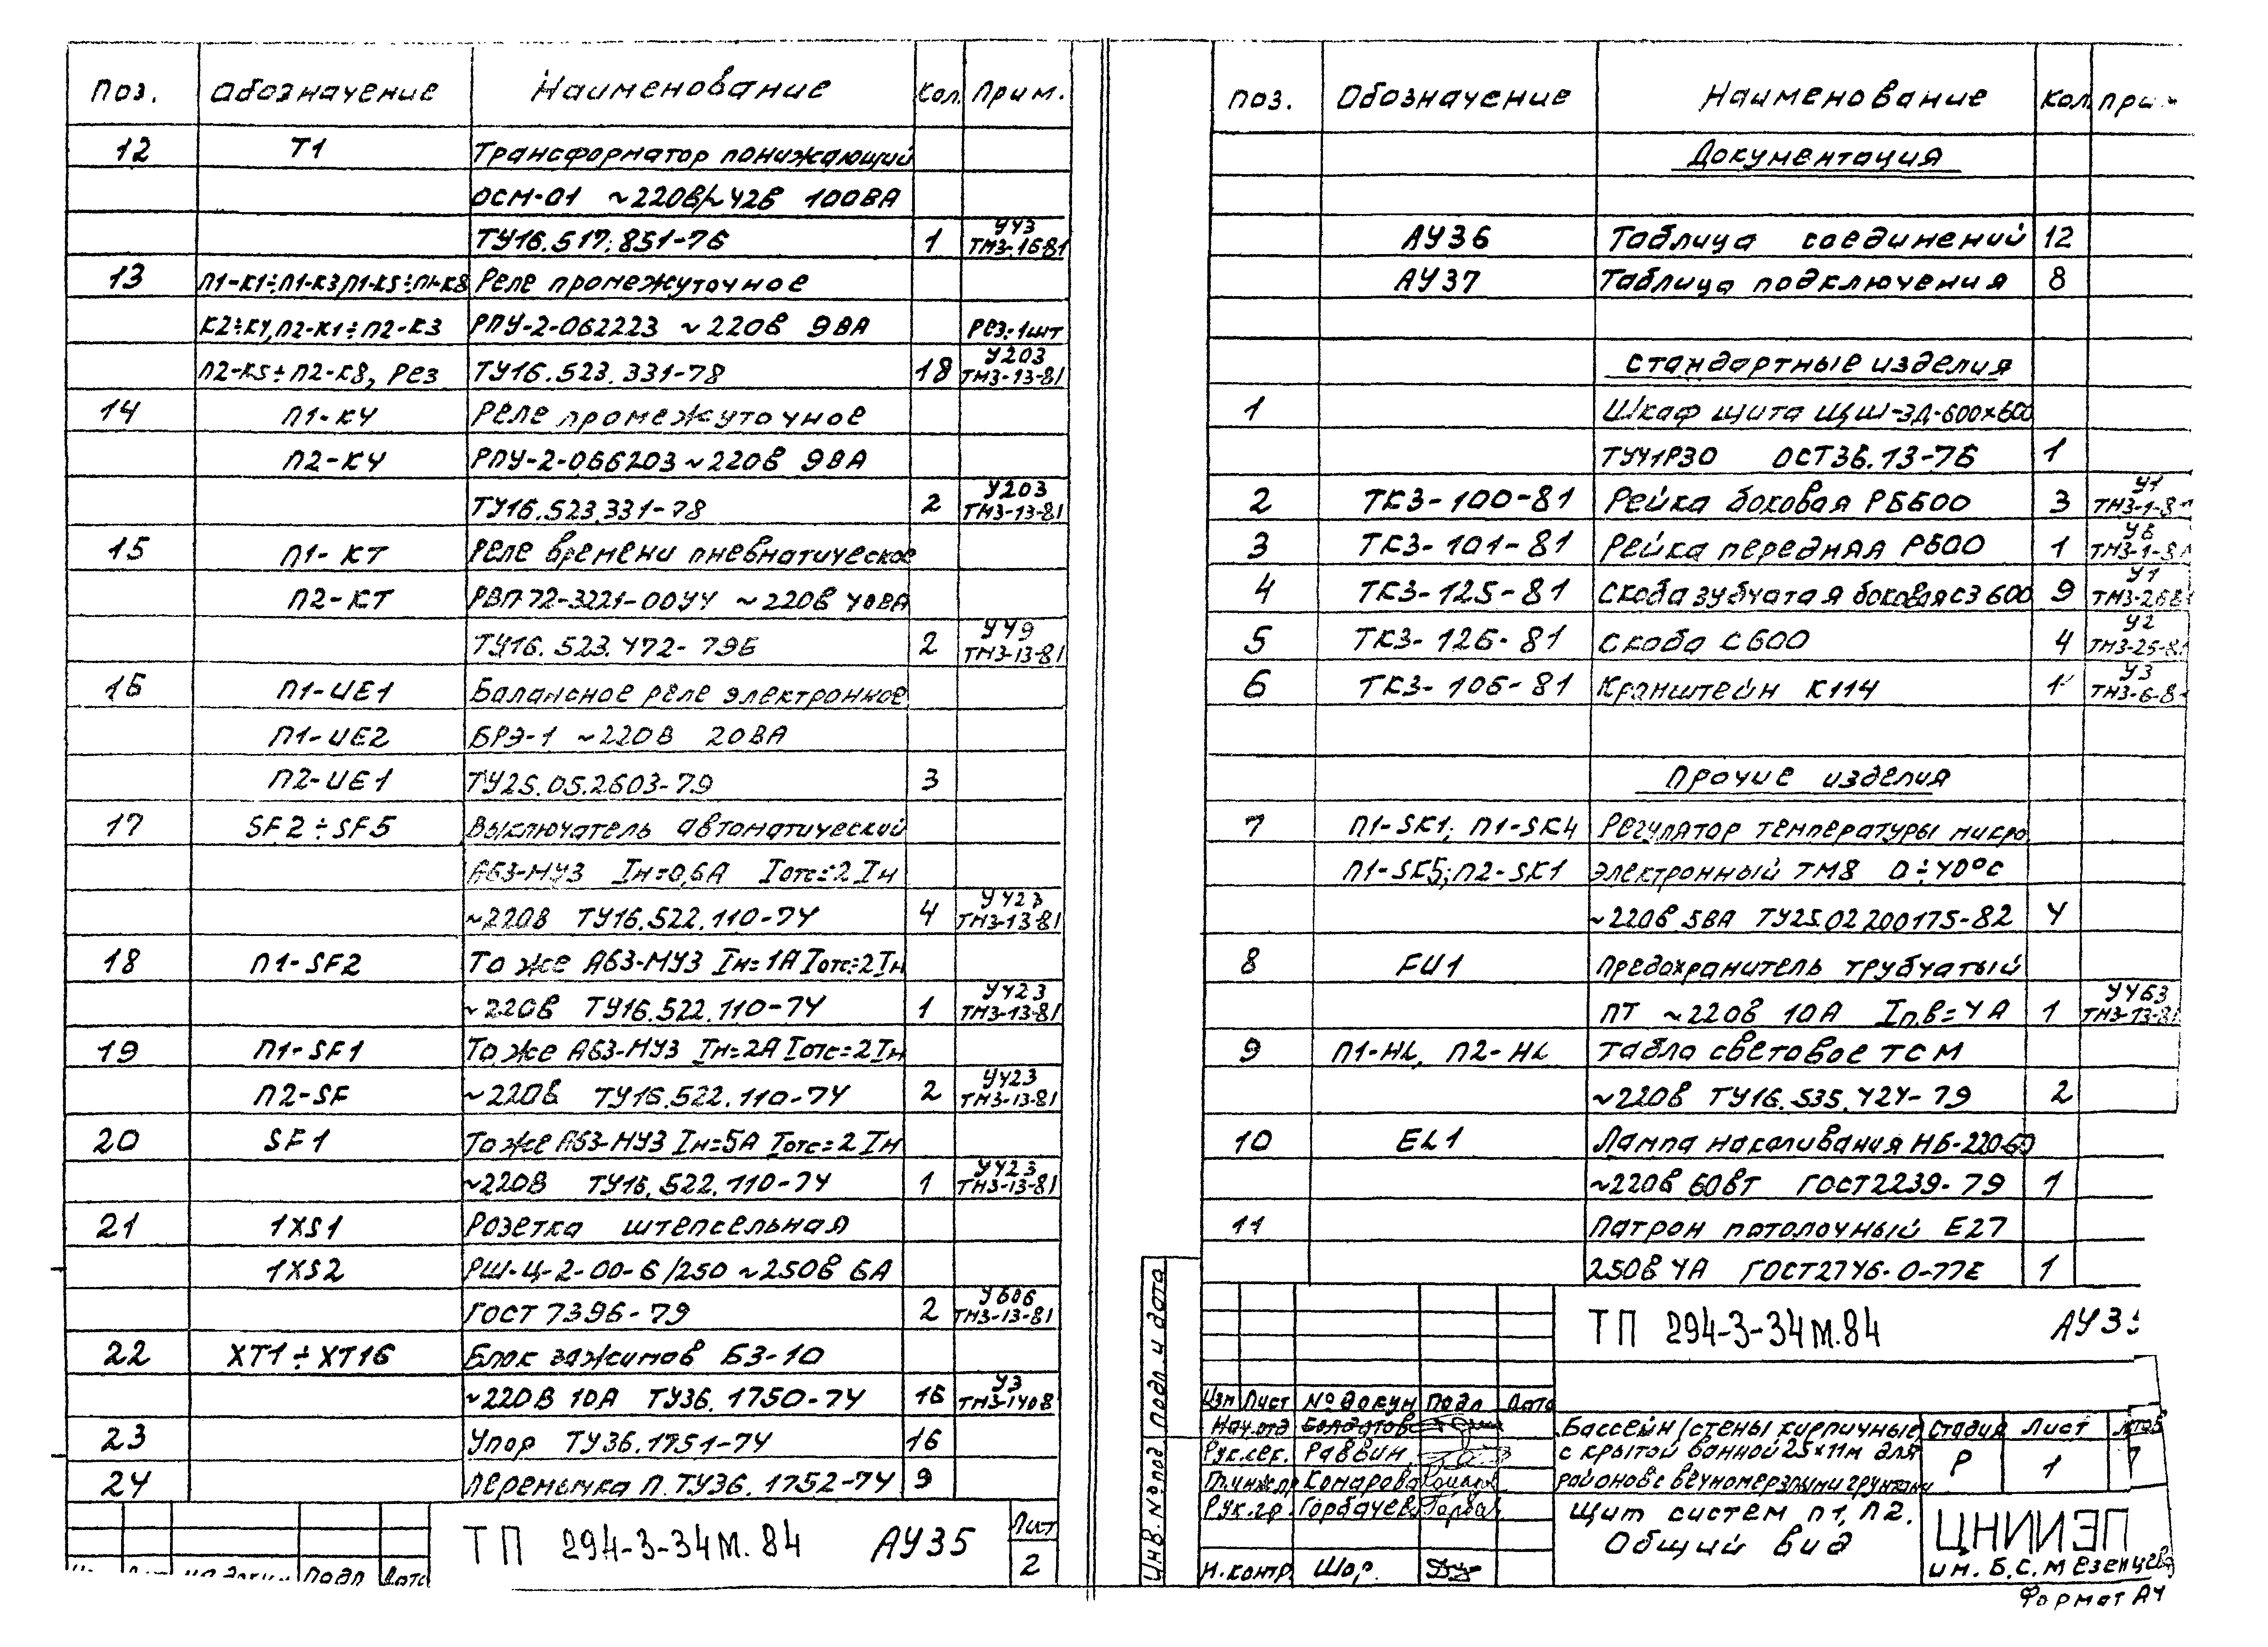 Поз. Обозначение Наименование Кол. Прим.
12 Т1 Трансформатор понижающий
ОСМ-01 ~220В/~42В 100ВА
ТУ16.517.851-76 1 У43 ТМ3-16-81
13 П1-К1÷П1-К3, П1-К5÷П1-К8 Реле промежуточное
К2÷К4, П2-К1÷П2-К3 РПУ-2-062223 ~220В 9ВА Рез.-1шт
П2-К5÷П2-К8, Рез ТУ16.523.331-78 18 У203 ТМ3-13-81
14 П1-К4 Реле промежуточное
П2-К4 РПУ-2-066203 ~220В 9ВА
ТУ16.523.331-78 2 У203 ТМ3-13-81
15 П1-КТ Реле времени пневматическое
П2-КТ РВП72-3221-00У4 ~220В 40ВА
ТУ16.523.472-79Е 2 У49 ТМ3-13-81
16 П1-UE1 Балансное реле электронное
П1-UE2 БРЭ-1 ~220В 20ВА
П2-UE1 ТУ25.05.2603-79 3
17 SF2÷SF5 Выключатель автоматический
А63-МУ3 Iн=0,6А Iотс=2Iн
~220В ТУ16.522.110-74 4 У423 ТМ3-13-81
18 П1-SF2 То же А63-МУ3 Iн=1А Iотс=2Iн
~220В ТУ16.522.110-74 1 У423 ТМ3-13-81
19 П1-SF1 То же А63-МУ3 Iн=2А Iотс=2Iн
П2-SF ~220В ТУ16.522.110-74 2 У423 ТМ3-13-81
20 SF1 То же А63-МУ3 Iн=5А Iотс=2Iн
~220В ТУ16.522.110-74 1 У423 ТМ3-13-81
21 1XS1 Розетка штепсельная
1XS2 РШ-Ц-2-00-6/250 ~250В 6А
ГОСТ 7396-79 2 У606 ТМ3-13-81
22 ХТ1÷ХТ16 Блок зажимов БЗ-10
~220В 10А ТУ36.1750-74 16 У3 ТМ3-1408
23 Упор ТУ36.1751-74 16
24 Перемычка П ТУ36.1752-74 9
ТП 294-3-34М.84 АУ35 Лист 2
Подп Дата
Поз. Обозначение Наименование Кол. Прим
Документация
АУ36 Таблица соединений 12
АУ37 Таблица подключения 8
Стандартные изделия
1 Шкаф щита ЩШ-ЗД-600х600
ТУ41Р30 ОСТ36.13-76 1
2 ТК3-100-81 Рейка боковая РБ600 3 У1 ТМ3-1-81
3 ТК3-101-81 Рейка передняя Р600 1 У6 ТМ3-1-81
4 ТК3-125-81 Скоба зубчатая боковая СЗ 600 9 У1 ТМ3-26-81
5 ТК3-126-81 Скоба С600 4 У2 ТМ3-25-81
6 ТК3-106-81 Кронштейн К114 1 У3 ТМ3-6-81
Прочие изделия
7 П1-SK1; П1-SK4 Регулятор температуры микро
П1-SK5; П2-SK1 электронный ТМ8 0÷40°С
~220В 5ВА ТУ25.02.200175-82 4
8 FU1 Предохранитель трубчатый
ПТ ~220В 10А Iп.в=4А 1 У463 ТМ3-13-81
9 П1-HL, П2-HL Табло световое ТСМ
~220В ТУ16.535.424-79 2
10 EL1 Лампа накаливания НБ-220-60
~220В 60Вт ГОСТ2239-79 1
11 Патрон потолочный Е27
250В 4А ГОСТ2746.0-77Е 1
Инв.№под Подп. и дата
ТП 294-3-34М.84 АУ35
Изм Лист № докум Подп Дата
Нач.отд Болдотов
Рук.сек. Раввин
Гл.инж.пр Комарова
Рук.гр. Горбачева
Н.контр. Шор.
Бассейн (стены кирпичные) Стадия Лист
с крытой ванной 25х11м для Р 1 7
районов с вечномерзлыми грунтами
Щит систем П1, П2.
Общий вид
ЦНИИЭП
им. Б.С.Мезенцева
Формат А4